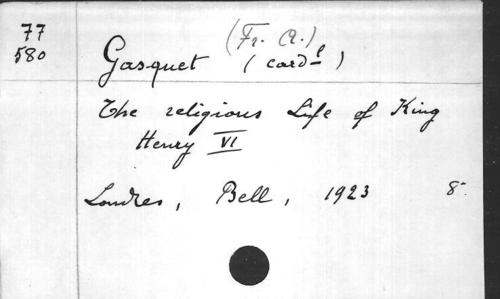 77
580
(Fr. A.)
Gasquet (card l)
The religious Life of King
Henry VI
Londres, Bell, 1923 8°